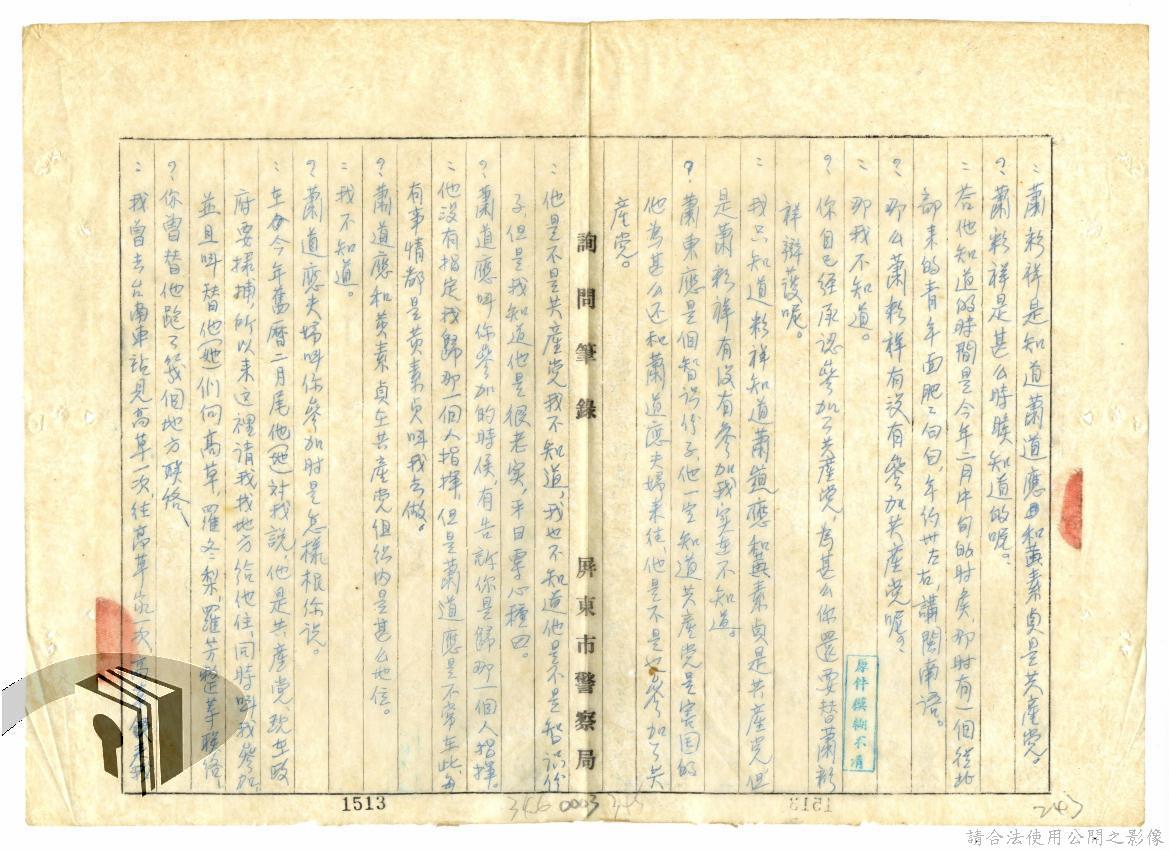 ：蕭彩祥是知道蕭道應和黃素貞是共產党。
？蕭彩祥是甚么時候知道的呢。
：答他知道的時間是今年二月中旬的时矦，那时有一個從北
部来的青年面肥了白白，年约卅左右，講閩南语。
？那么蕭彩祥有没有參加共產党呢？
：那我不知道。
？你自已経承認參加了共產党，為甚么你還要替蕭彩
祥辯護呢。
：我只知道彩祥知道蕭道應和黃素貞是共產党但
是蕭彩祥有没有參加我实在不知道。
？蕭東應是個智识份子他一定知道共產党是害国的
他為甚么还和蕭道應夫婦来往，他是不是也參加了共
產党。
詢問筆錄　屏東市警察局
：他是不是共產党我不知道，我也不知道他是不是智识份
子，但是我知道他是很老实，平日栗心種田。
？蕭道應叫你參加的時候，有告訴你是歸那一個人指揮。
：他没有指定我歸那一個人指揮，但是蕭道應是不常在此，每
有事情都是黃素貞叫我去做。
？蕭道應和黃素貞在共產党组织内是甚么地位。
：我不知道。
？蕭道應夫婦叫你參加时是怎樣根你说。
：在今年舊曆二月尾他（她）对我説他是共產党現在政
府要採捕，所以来这裡請我找地方給他住，同時叫我參加
並且叫替他（她）们向高草，羅冬梨，羅芳
联络，
？你曾替他跑了幾個地方联络
：我曾去台南車站見高草一次，往高草家一次，
原件模糊不清
1513
0003
1513
243
請合法使用公開之影像